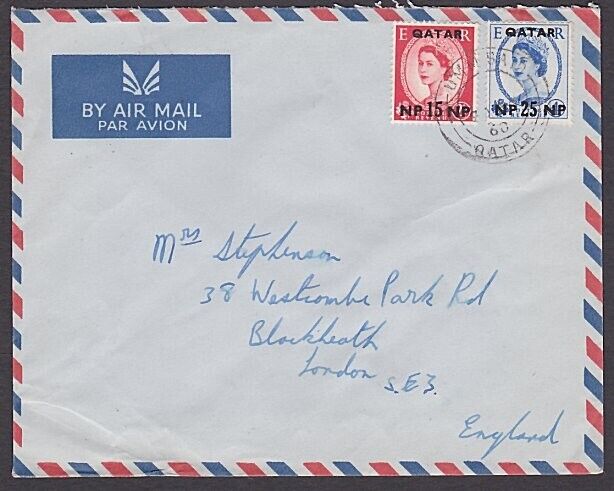 BY AIR MAIL
PAR AVION
E QATAR R
NP 15 NP
E QATAR R
NP 25 NP
60
QATAR
Mrs Stephenson
38 Westcombe Park Rd
Blackheath
London S.E.3.
England